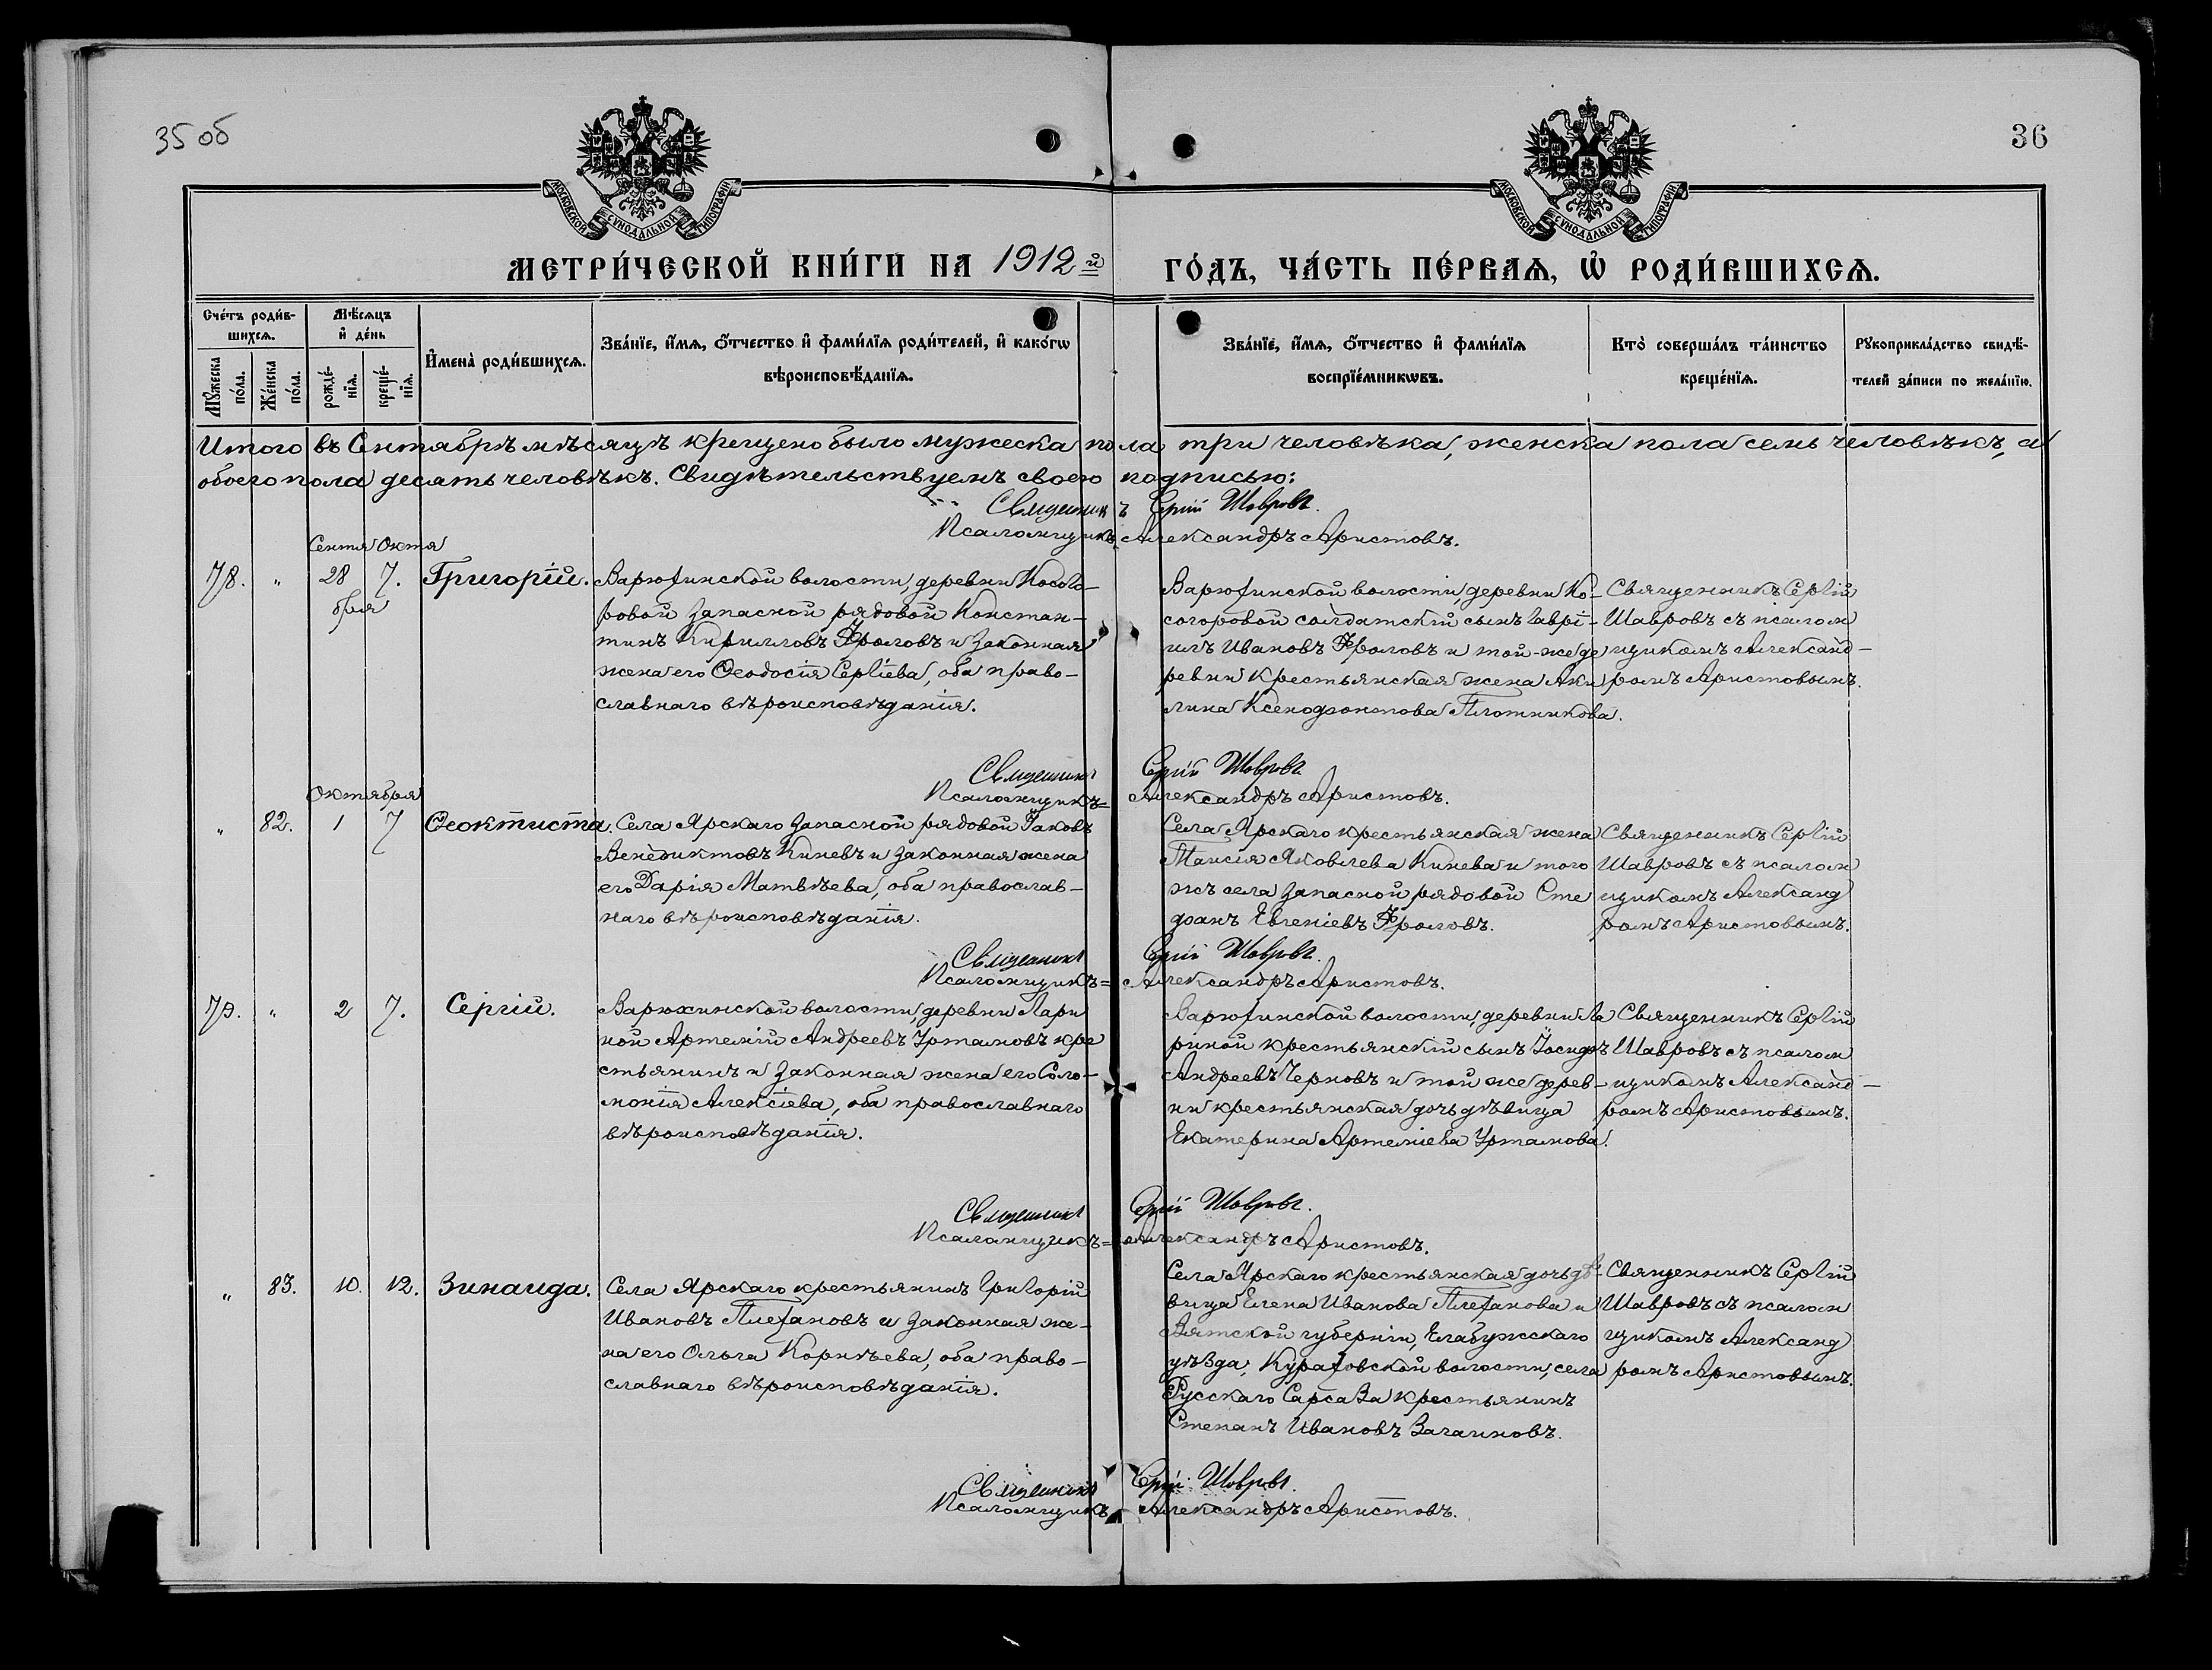 35 об
36
МОСКОВСКОЙ СУНОДАЛЬНОЙ ТИПОГРАФІИ
МОСКОВСКОЙ СУНОДАЛЬНОЙ ТИПОГРАФІИ
МЕТРИ́ЧЕСКОЙ КНИ́ГИ НА 1912й ГО́ДЪ, ЧА́СТЬ ПЕ́РВАѦ, Ѡ҆ РОДИ́ВШИХСѦ.
Сче́тъ роди́в-
шихсѧ.
Мꙋ́жеска по́ла.
Же́нска по́ла.
Мѣ́сѧцъ
и҆ де́нь
рожде́-
нїѧ.
креще́-
нїѧ.
И҆мена̀ роди́вшихсѧ.
Зва́нїе, и҆́мѧ, ѻ҆́тчество и҆ фами́лїѧ роди́телей, и҆ како́гѡ
вѣроисповѣ́данїѧ.
Зва́нїе, и҆́мѧ, ѻ҆́тчество и҆ фами́лїѧ
воспрїе́мникѡвъ.
Кто̀ соверша́лъ та́инство
креще́нїѧ.
Рꙋкоприкла́дство свидѣ́-
телей за́писи по жела́нїю.
Итого въ Сентябрѣ мѣсяцѣ крещено было мужеска пола три человѣка, женска пола семь человѣкъ, а
обоего пола десять человѣкъ. Свидѣтельствуемъ своею подписью:
Священникъ Сергій Шавровъ.
Псаломщикъ Александръ Аристовъ.
Сентя Октя
78. " 28 7. Григорій.
бря
Варюхинской волости, деревни Косого-
ровой запасной рядовой Констан-
тинъ Кирилловъ Фроловъ и законная
жена его Ѳеодосія Сергіева, оба право-
славнаго вѣроисповѣданія.
Варюхинской волости, деревни Ко-
согоровой солдатскій сынъ Гаврі-
илъ Ивановъ Фроловъ и той-же де
ревни крестьянская жена Аки
лина Ксенофонтова Плотникова.
Священникъ Сергій
Шавровъ съ псалом
щикомъ Александ-
ромъ Аристовымъ.
Священникъ Сергій Шавровъ
Псаломщикъ= Александръ Аристовъ.
Октября
" 82. 1 7 Ѳеоктиста.
Села Ярскаго запасной рядовой Іаковъ
Венедиктовъ Киневъ и законная жена
его Дарія Матвѣева, оба православ-
наго вѣроисповѣданія.
Села Ярскаго крестьянская жена
Таисія Яковлева Кинева и того
жъ села запасной рядовой Сте
фанъ Евгеніевъ Фроловъ.
Священникъ Сергій
Шавровъ съ псалом
щикомъ Александ
ромъ Аристовымъ.
Священникъ Сергій Шавровъ.
Псаломщикъ= Александръ Аристовъ.
79. " 2 7. Сергій.
Варюхинской волости, деревни Лари
ной Артемій Андреевъ Уртамовъ кре
стьянинъ и законная жена его Соло-
монія Алексіева, оба православнаго
вѣроисповѣданія.
Варюхинской волости, деревни Ла
риной крестьянскій сынъ Іосифъ
Андреевъ Черновъ и той же дерев-
ни крестьянская дочь дѣвица
Екатерина Артеміева Уртамова.
Священникъ Сергій
Шавровъ съ псалом
щикомъ Александ-
ромъ Аристовымъ.
Священникъ Сергій Шавровъ.
Псаломщикъ= Александръ Аристовъ.
" 83. 10. 12. Зинаида.
Села Ярскаго крестьянинъ Григорій
Ивановъ Плехановъ и законная же-
на его Ольга Корнѣева, оба право-
славнаго вѣроисповѣданія.
Села Ярскаго крестьянская дочь дѣ-
вица Елена Иванова Плеханова и
Вятской губерніи, Елабужскаго
уѣзда, Кураковской волости, села
Русскаго Сарсаза крестьянинъ
Степанъ Ивановъ
Священникъ Сергій
Шавровъ съ псалом
щикомъ Александ
ромъ Аристовымъ.
Священникъ Сергій Шавровъ.
Псаломщикъ Александръ Аристовъ.